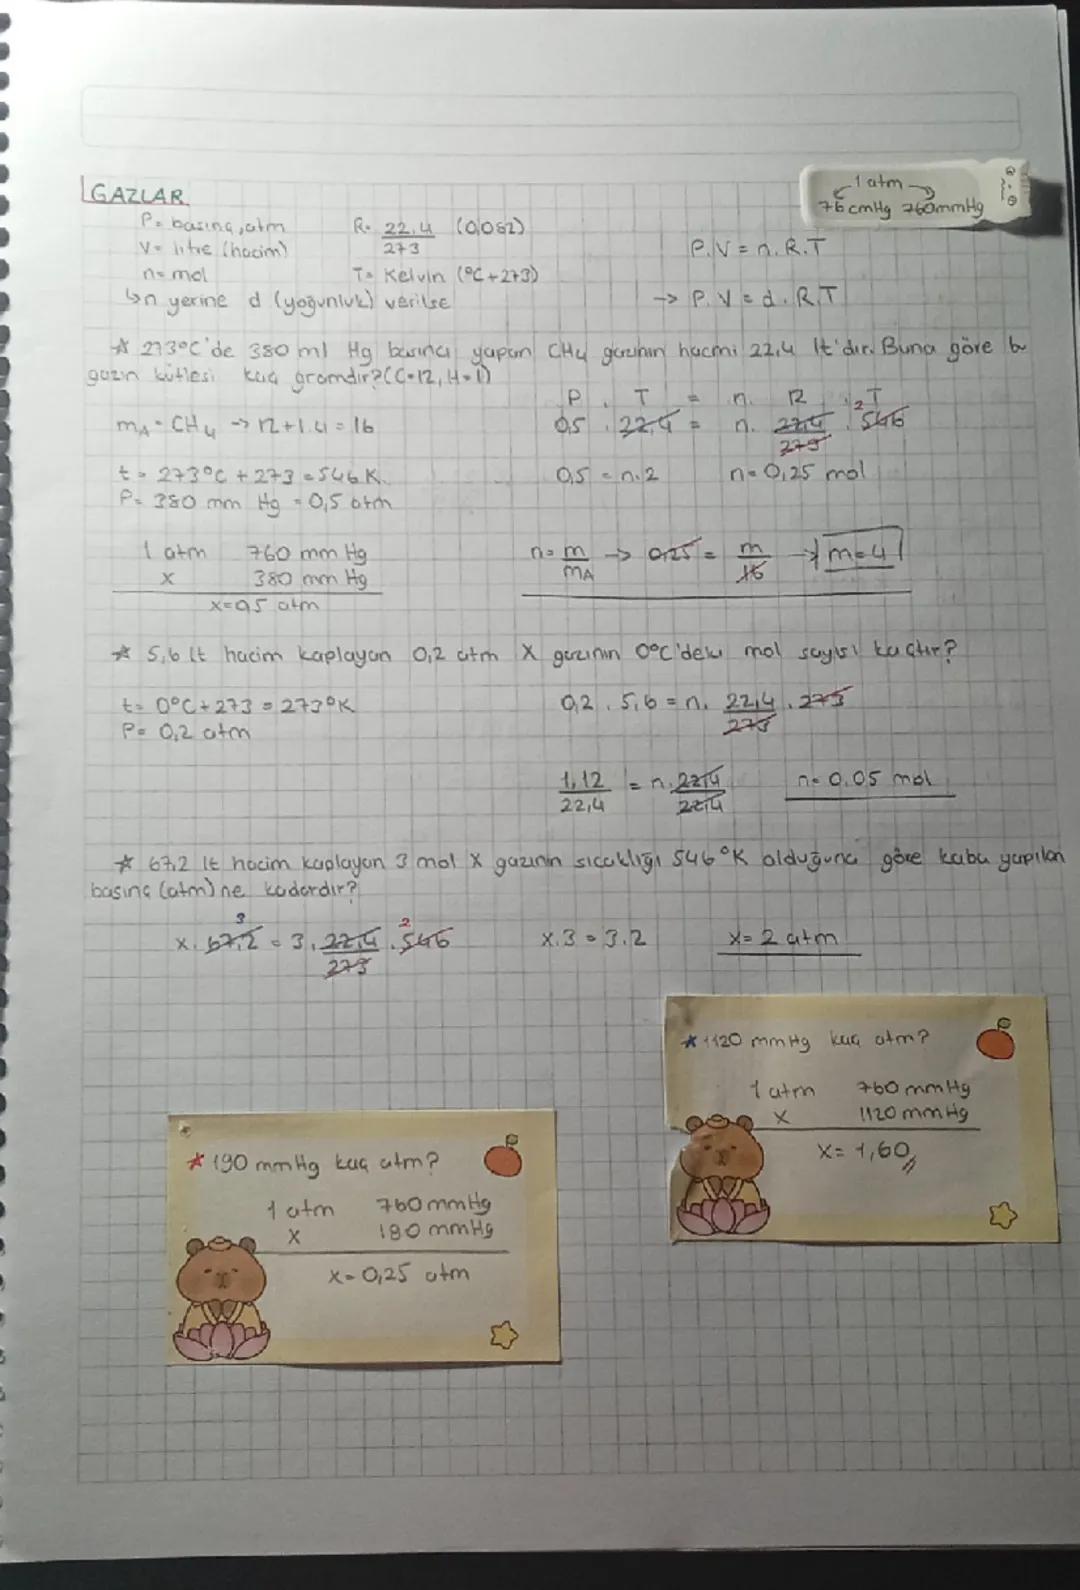 GAZLAR
1 atm
76 cmHg 760mmHg
P= basınç, atm R= 22,4 (0,082)
V= litre (hacim) 273 P.V = n.R.T
n= mol T= Kelvin (°C+273)
↳n yerine d (yoğunluk) verilse → P.V = d.R.T
* 273°C'de 380 ml Hg basıncı yapan CH4 gazının hacmi 22,4 lt'dır. Buna göre bu
gazın kütlesi kaç gramdır? (C=12, H=1)
P . T = n. R . T
mA = CH4 → 12+1.4 = 16
0,5 . 22,4 = n. 22,4 . 546 2
273
t = 273°C + 273 = 546 K
0,5 = n.2 n= 0,25 mol
P= 380 mm Hg = 0,5 atm
1 atm 760 mm Hg
x 380 mm Hg
x=0,5 atm
n= m → 0,25 = m → m=4
mA 16
* 5,6 lt hacim kaplayan 0,2 atm X gazının 0°C'deki mol sayısı kaçtır?
t= 0°C+273 = 273°K
P= 0,2 atm
0,2 . 5,6 = n. 22,4 . 273
273
1,12 = n.22,4 n= 0.05 mol
22,4 22,4
* 67,2 lt hacim kaplayan 3 mol X gazının sıcaklığı 546°K olduğuna göre kaba yapılan
basınç (atm) ne kadardır?
3 2
x. 67,2 = 3. 22,4 . 546 x.3 = 3.2 x= 2 atm
273
* 1120 mmHg kaç atm?
1 atm 760 mmHg
x 1120 mmHg
x= 1,60
* 190 mmHg kaç atm?
1 atm 760 mmHg
x 190 mmHg
x= 0,25 atm